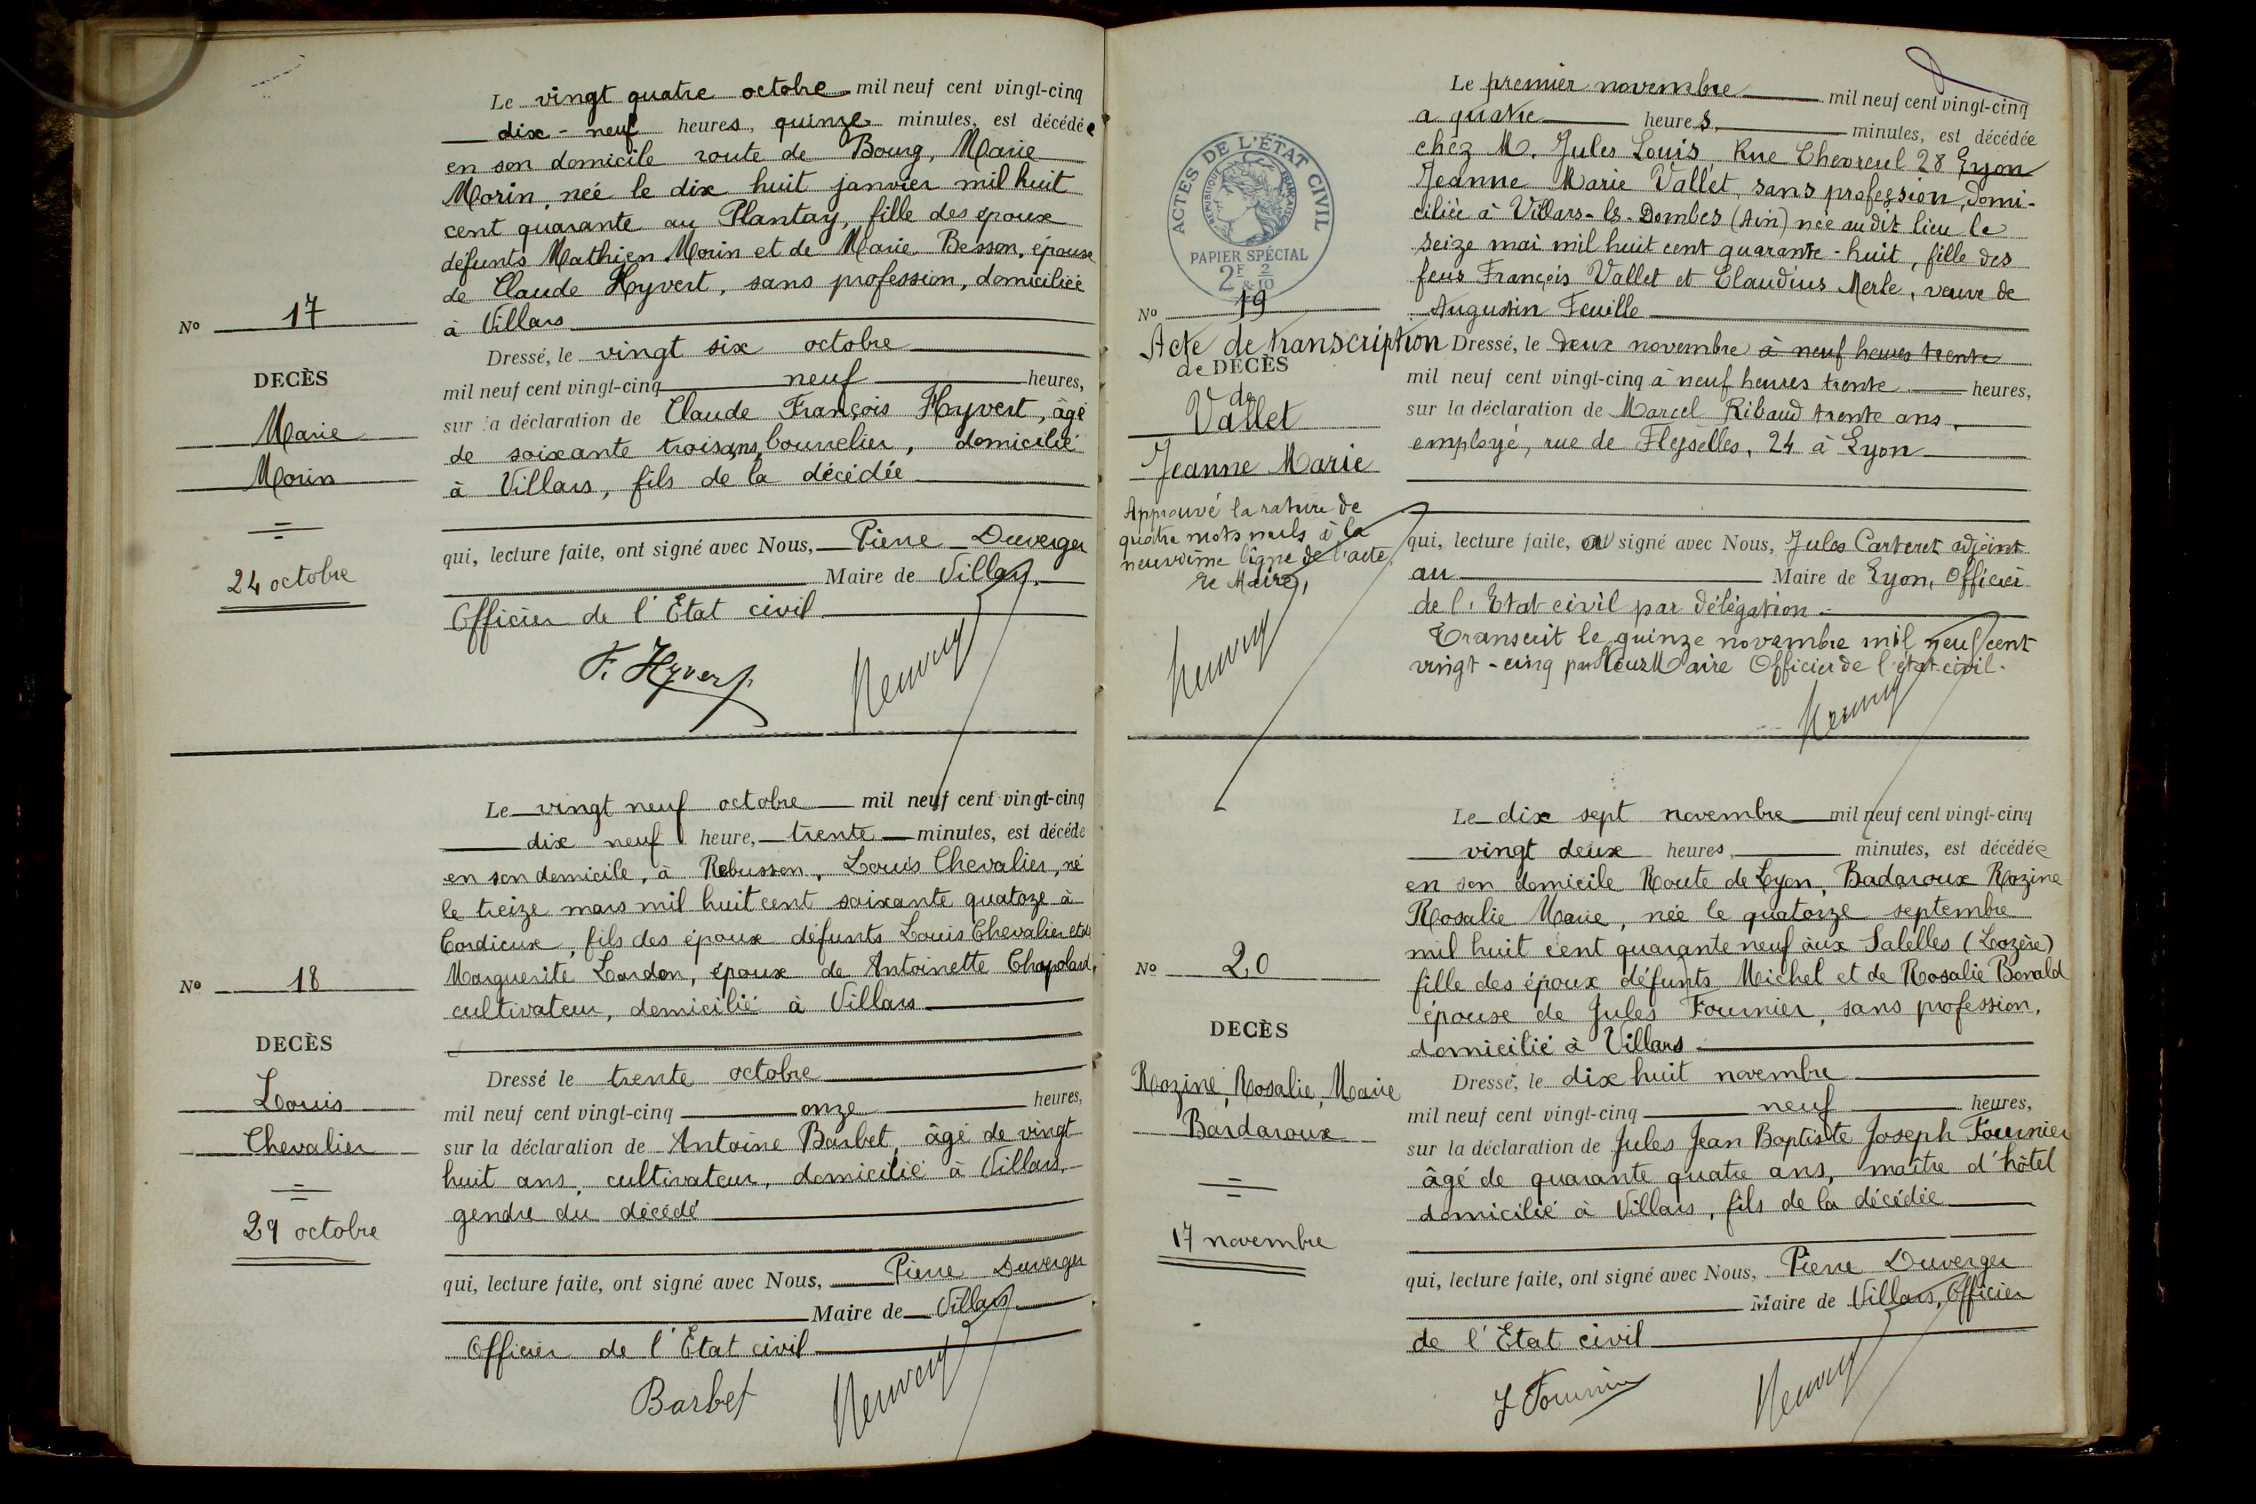 Le vingt quatre octobre mil neuf cent vingt-cinq
dix-neuf heures, quinze minutes, est décédée
en son domicile route de Bourg, Marie
Morin, née le dix huit janvier mil huit
cent quarante au Plantay, fille des époux
défunts Mathieu Morin et de Marie Besson, épouse
de Claude Hyvert, sans profession, domiciliée
à Villars
No 17
DECÈS
Marie
Morin
24 octobre
Dressé, le vingt six octobre
mil neuf cent vingt-cinq neuf heures,
sur la déclaration de Claude François Hyvert, âgé
de soixante trois ans, bourrelier, domicilié
à Villars, fils de la décédée
qui, lecture faite, ont signé avec Nous, Pierre Duverger
Maire de Villars,
Officier de l'Etat civil
F. Hyvert
Le vingt neuf octobre mil neuf cent vingt-cinq
dix neuf heure, trente minutes, est décédé
en son domicile, à Rebusson, Louis Chevalier, né
le treize mars mil huit cent soixante quatoze à
Cordieux, fils des époux défunts Louis Chevalier et de
Marguerite Lardon, époux de Antoinette Chapolard,
cultivateur, domicilié à Villars
No 18
DECÈS
Louis
Chevalier
29 octobre
Dressé le trente octobre
mil neuf cent vingt-cinq onze heures,
sur la déclaration de Antoine Barbet, âgé de vingt
huit ans, cultivateur, domicilié à Villars,
gendre du décédé
qui, lecture faite, ont signé avec Nous, Pierre Duverger
Maire de Villars
Officier de l'Etat civil
Barbet
ACTES DE L'ÉTAT CIVIL
RÉPUBLIQUE FRANÇAISE
PAPIER SPÉCIAL
2F & 2/10
No 19
Acte de transcription
de DÉCÈS
de
Vallet
Jeanne Marie
Approuvé la rature de
quatre mots nuls à la
neuvième ligne de l'acte.
Le Maire,
Le premier novembre mil neuf cent vingt-cinq
a quatre heures, minutes, est décédée
chez M. Jules Louis, Rue Chevreul 28 Lyon
Jeanne Marie Vallet, sans profession, domi-
ciliée à Villars-ls-Dombes (Ain) née audit lieu le
seize mai mil huit cent quarante-huit, fille des
feus François Vallet et Claudius Merle, veuve de
Augustin Feuille
Dressé, le deux novembre à neuf heures trente
mil neuf cent vingt-cinq à neuf heures trente heures,
sur la déclaration de Marcel Ribaud trente ans,
employé, rue de Fleyselles, 24 à Lyon
qui, lecture faite, a signé avec Nous, Jules Carteret adjoint
au Maire de Lyon, Officier
de l'Etat civil par délégation.
Transcrit le quinze novembre mil neuf cent
vingt-cinq par Nous Maire Officier de l'état-civil.
Le dix sept novembre mil neuf cent vingt-cinq
vingt deux heures, minutes, est décédée
en son domicile Route de Lyon, Badaroux Rozine
Rosalie Marie, née le quatorze septembre
mil huit cent quarante neuf aux Salelles (Lozère)
fille des époux défunts Michel et de Rosalie Bonald
épouse de Jules Fournier, sans profession,
domicilié à Villars
No 20
DECÈS
Rozine, Rosalie, Marie
Bardaroux
17 novembre
Dressé, le dix huit novembre
mil neuf cent vingt-cinq neuf heures,
sur la déclaration de Jules Jean Baptiste Joseph Fournier
âgé de quarante quatre ans, maître d'hôtel
domicilié à Villars, fils de la décédée
qui, lecture faite, ont signé avec Nous, Pierre Duverger
Maire de Villars, Officier
de l'Etat civil
J Fournier